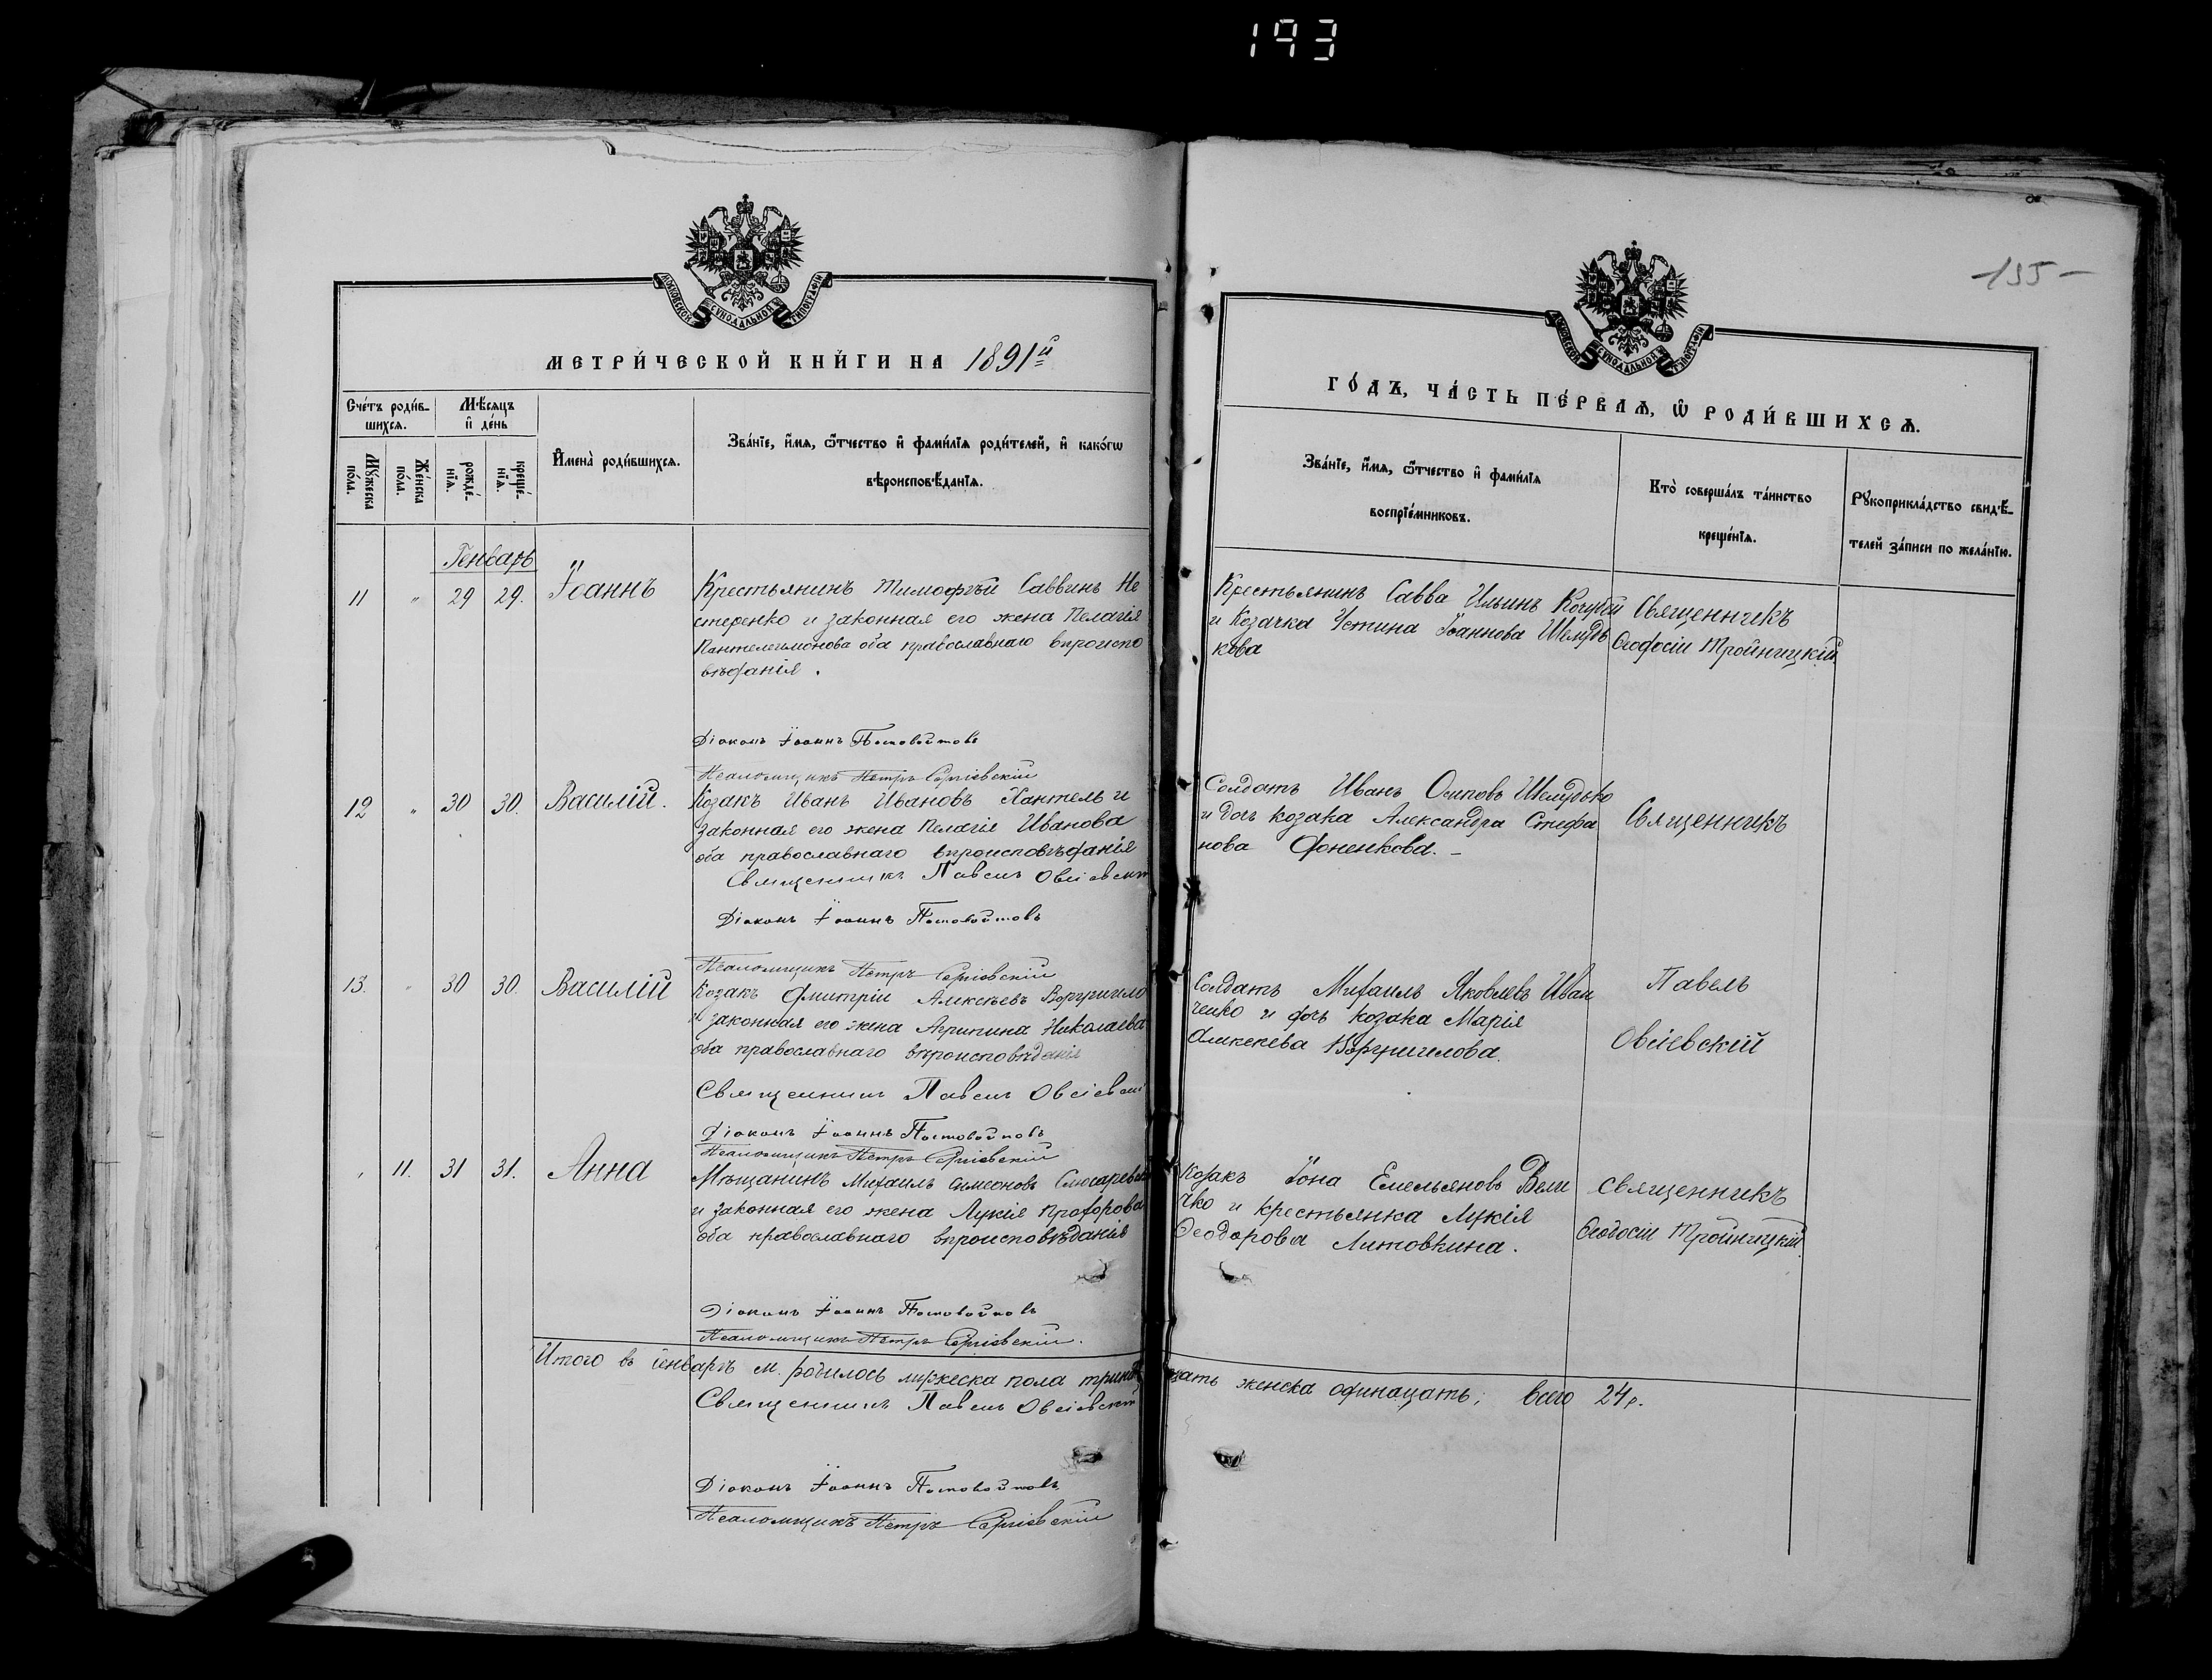 193
-155-
МОСКОВСКОЙ СѴНОДАЛЬНОЙ ТИПОГРАФІИ
МЕТРИ́ЧЕСКОЙ КНИ́ГИ НА 1891й
Сче́тъ роди́в-
шихся.
Мѣ́сяцъ
и҆ де́нь
Мꙋ́жеска
по́ла.
Же́нска
по́ла.
рожде́-
нїѧ.
креще́-
нїѧ.
И҆мена̀ роди́вшихся.
Зва́нїе, и҆́мѧ, ѻ҆́тчество и҆ фами́лїѧ роди́телей, и҆ како́гѡ
вѣроисповѣ́данїѧ.
Генварь
11 " 29 29. Іоаннъ
Крестьянинъ Тимофѣй Саввинъ Не
стеренко и законная его жена Пелагія
Пантелеимонова оба православнаго вѣроиспо
вѣданія.
Діаконъ Іоаннъ Постовойтовъ
Псаломщикъ Петръ Сергіевскій
12 " 30 30. Василій.
Козакъ Иванъ Ивановъ Кантель и
законная его жена Пелагія Иванова
оба православнаго вѣроисповѣданія
Священникъ Павелъ Овсіевскій
Діаконъ Іоаннъ Постовойтовъ
Псаломщикъ Петръ Сергіевскій
13. " 30 30. Василій
Козакъ Дмитрій Алексѣевъ
и законная его жена Агрипина Николаева
оба православнаго вѣроисповѣданія
Священникъ Павелъ Овсіевскій
Діаконъ Іоаннъ Постовойтовъ
Псаломщикъ Петръ Сергіевскій
" 11. 31 31. Анна
Мѣщанинъ Михаилъ Симеоновъ
и законная его жена Лукія Прохорова
оба православнаго вѣроисповѣданія
Діаконъ Іоаннъ Постовойтовъ
Псаломщикъ Петръ Сергіевскій.
Итого въ Генварѣ м. родилось мужеска пола тринадцать женска одинацать; всего 24 р.
Священникъ Павелъ Овсіевскій
Діаконъ Іоаннъ Постовойтовъ
Псаломщикъ Петръ Сергіевскій
МОСКОВСКОЙ СѴНОДАЛЬНОЙ ТИПОГРАФІИ
ГО́ДЪ, ЧА́СТЬ ПЕ́РВАѦ, Ѡ҆ РОДИ́ВШИХСѦ.
Зва́нїе, и҆́мѧ, ѻ҆́тчество и҆ фами́лїѧ
воспрїе́мниковъ.
Кто̀ соверша́лъ та́инство
креще́нїѧ.
Рꙋкоприкла́дство свидѣ́-
телей за́писи по жела́нїю.
Крестьянинъ Савва Ильинъ Кочубей
и Козачка Устина Іоаннова Шемудь
кова
Священникъ
Ѳеодосій Тройницкій
Солдатъ Иванъ Осиповъ Шемудько
и дочь козака Александра Стефа
нова Фоненкова. –
Священникъ
Солдатъ Михаилъ Яковлевъ Иван
ченко и дочь козака Марія
Алексеева
Павелъ
Овсіевскій
Козакъ Іона Емельяновъ Вели
чко и крестьянка Лукія
Ѳеодорова Литовкина.
Священникъ
Ѳеодосій Тройницкій